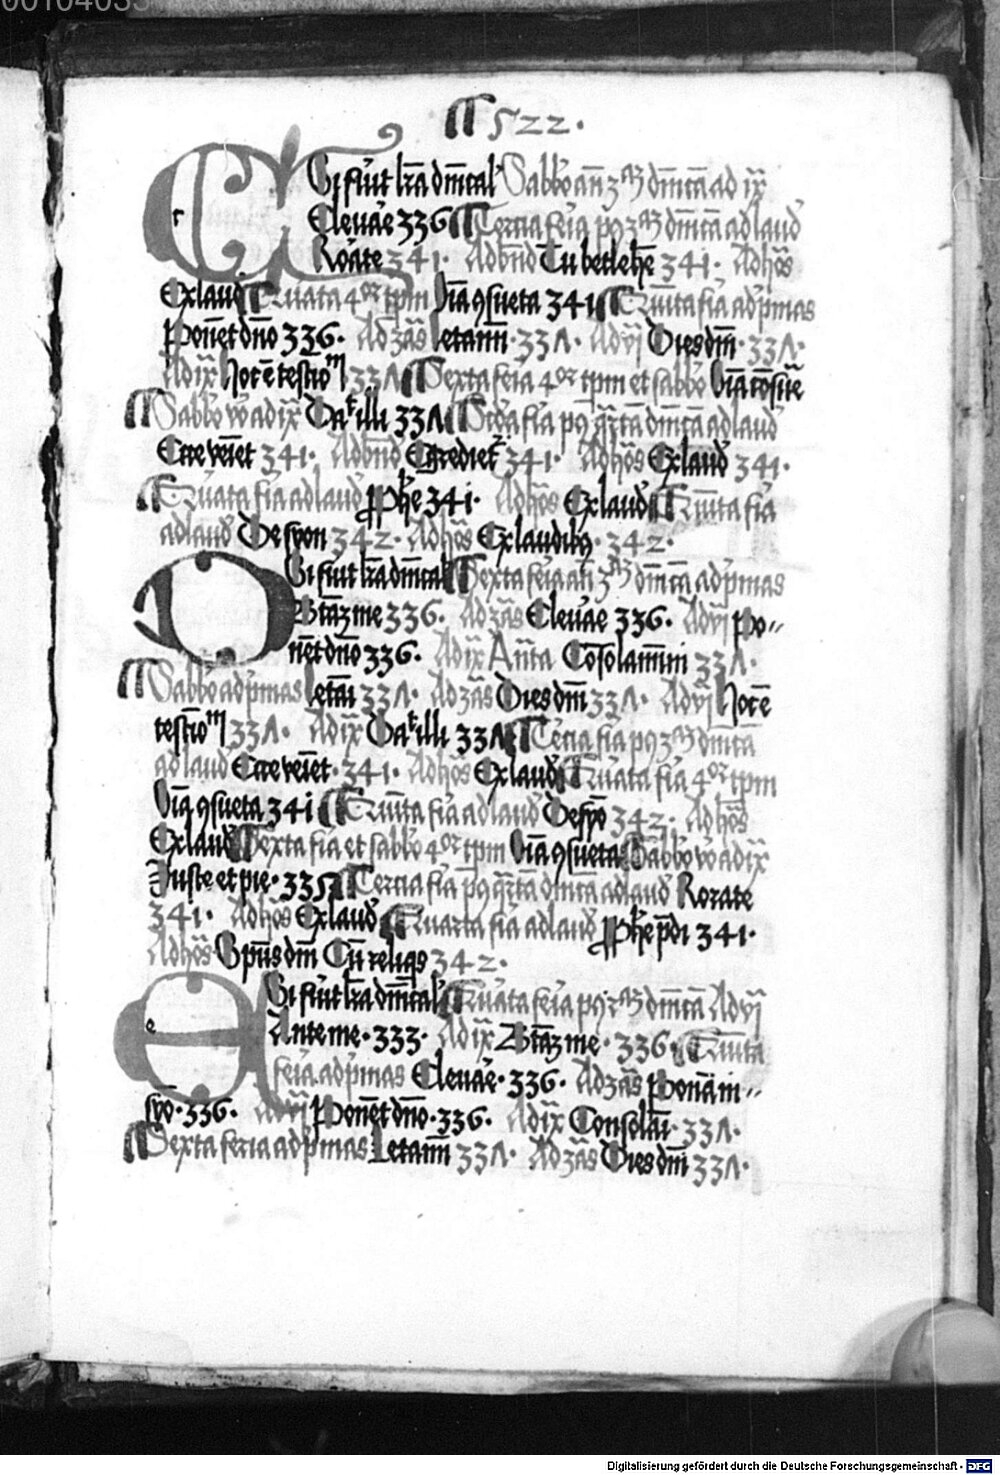 00104035
¶ 522.
C Si fūit lr̄a dm̄cal' Sabb̄o an̄ 3ᵃᵐ dm̄cā ad ix
Elevāe 336 ¶ Tercia fēia pꝰ 3ᵃᵐ dm̄cā ad laud'
Roāte 341. Ad bn̄d Tu betlehē 341. Ad hōs
Ex laud' ¶ Quarta 4ᵒʳ tp̄m Via ꝯsueta 341 ¶ Quīta fīa ad p̄mas
Ponēt dn̄o 336. Ad 3ās Letam̄ 33Λ. Ad vj Dies dm̄ 33Λ.
Ad ix Hoc ē testīoᵐ 33Λ ¶ Sexta feria 4ᵒʳ tp̄m et sabb̄o Via cōsue
¶ Sabb̄o v̄o ad ix Da illi 33Λ ¶ Scd̄a fīa pꝰ qr̄tā dm̄cā ad laud'
Ecce veīet 341. Ad bn̄d Egrediet' 341. Ad hōs Ex laud' 341.
¶ Quarta fīa ad laud' Pphe 341. Ad hōs Ex laud' ¶ Quīta fīa
ad laud' De syon 342. Ad hōs Ex laudibꝰ 342.
D Si fūit lr̄a dm̄cal' ¶ Sexta fēia an̄ 3ᵃᵐ dm̄cā ad p̄mas
me 336. Ad 3ās Elevāe 336. Ad vj Po〃
nēt dn̄o 336. Ad ix An̄ta Cōsolamini 33Λ.
¶ Sabb̄o ad p̄mas Letam̄ 33Λ. Ad 3ās Dies dm̄ 33Λ. Ad vj Hoc ē
testīoᵐ 33Λ. Ad ix Da illi 33Λ ¶ Tercia fīa pꝰ 3ᵃᵐ dm̄cā
ad laud' Ecce veīet. 341. Ad hōs Ex laud' ¶ Quarta fīa 4ᵒʳ tp̄m
Via ꝯsueta 341 ¶ Quīta fīa ad laud' De syō 342. Ad hōs
Ex laud' ¶ Sexta fīa et sabb̄o 4ᵒʳ tp̄m Via ꝯsueta ¶ Sabb̄o v̄o ad ix
Juste et pie. ¶ Tercia fīa pꝰ qr̄tā dm̄cā ad laud' Rorate
341. Ad hōs Ex laud' ¶ Quarta fīa ad laud' Pphe p̄di 341.
Ad hōs Spūs dm̄ Cū reliqs 342.
E Si fūit lr̄a dm̄cal' ¶ Quarta fēia pꝰ 2ᵃᵐ dm̄cā Ad vj
Ante me. 333. Ad ix me. 336. ¶ Quīta
fēia ad p̄mas Elevāe. 336. Ad 3ās Ponā in〃
syō. 336. Ad vj Ponēt dn̄o. 336. Ad ix Consolam̄. 33Λ.
¶ Sexta feria ad p̄mas Letam̄ 33Λ. Ad 3ās Dies dm̄ 33Λ.
Digitalisierung gefördert durch die Deutsche Forschungsgemeinschaft - DFG